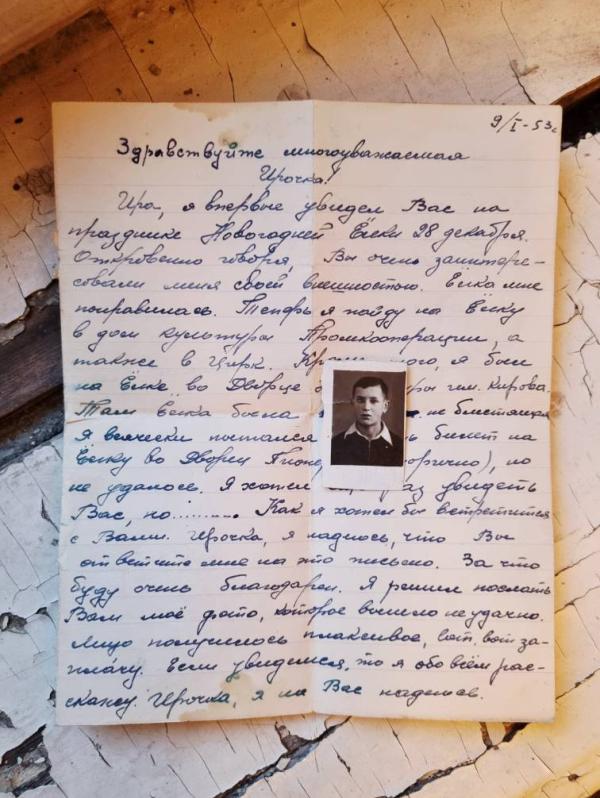 9/I-53г
Здравствуйте многоуважаемая
Ирочка!
Ира, я впервые увидел Вас на
празднике Новогодней Ёлки 28 декабря.
Откровенно говоря, Вы очень заинтере-
совали меня своей внешностью. Ёлка мне
понравилась. Теперь я пойду на Ёлку
в дом культуры Промкооперации, а
также в Цирк. я был
на Ёлке во Дворце им. Кирова.
Там Ёлка была не блестящая
Я всячески пытался билет на
Ёлку во Дворец но
не удалось. Я хотел раз увидеть
Вас, но......... Как я хотел бы встретится
с Вами. Ирочка, я надеюсь, что Вы
ответите мне на это письмо. За что
буду очень благодарен. Я решил послать
Вам моё фото, которое вышло неудачно.
Лицо получилось плаксивое, вот, вот за-
плачу. Если увидемся, то я обо всём рас-
скажу. Ирочка, я на Вас надеюсь.